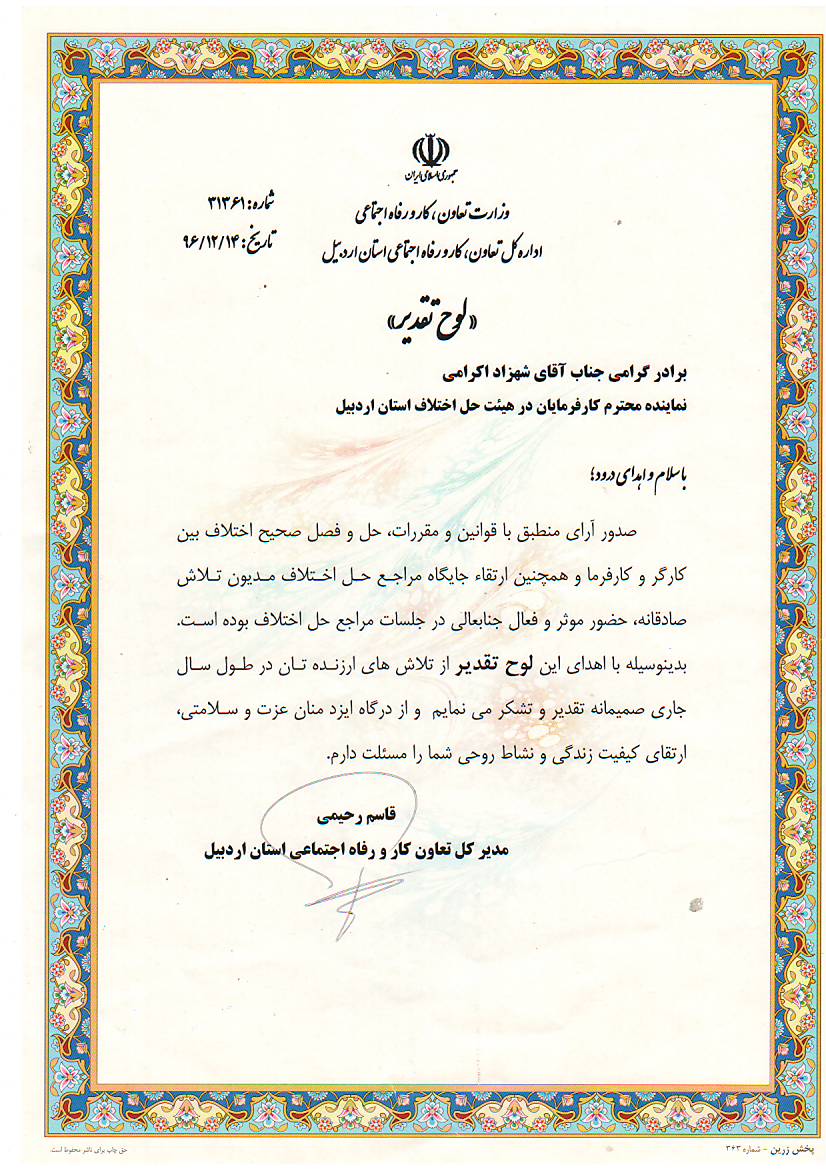 جمهوری اسلامی ایران
وزارت تعاون، کار و رفاه اجتماعی
اداره کل تعاون، کار و رفاه اجتماعی استان اردبیل
شماره: ۳۱۳۶۱
تاریخ: ۹۶/۱۲/۱۴
«لوح تقدیر»
برادر گرامی جناب آقای شهزاد اکرامی
نماینده محترم کارفرمایان در هیئت حل اختلاف استان اردبیل
با سلام و اهدای درود؛
صدور آرای منطبق با قوانین و مقررات، حل و فصل صحیح اختلاف بین
کارگر و کارفرما و همچنین ارتقاء جایگاه مراجع حل اختلاف مدیون تلاش
صادقانه، حضور موثر و فعال جنابعالی در جلسات مراجع حل اختلاف بوده است.
بدینوسیله با اهدای این لوح تقدیر از تلاش های ارزنده تان در طول سال
جاری صمیمانه تقدیر و تشکر می نمایم و از درگاه ایزد منان عزت و سلامتی،
ارتقای کیفیت زندگی و نشاط روحی شما را مسئلت دارم.
قاسم رحیمی
مدیر کل تعاون کار و رفاه اجتماعی استان اردبیل
پخش زرین - شماره ۳۶۳
حق چاپ برای ناشر محفوظ است.